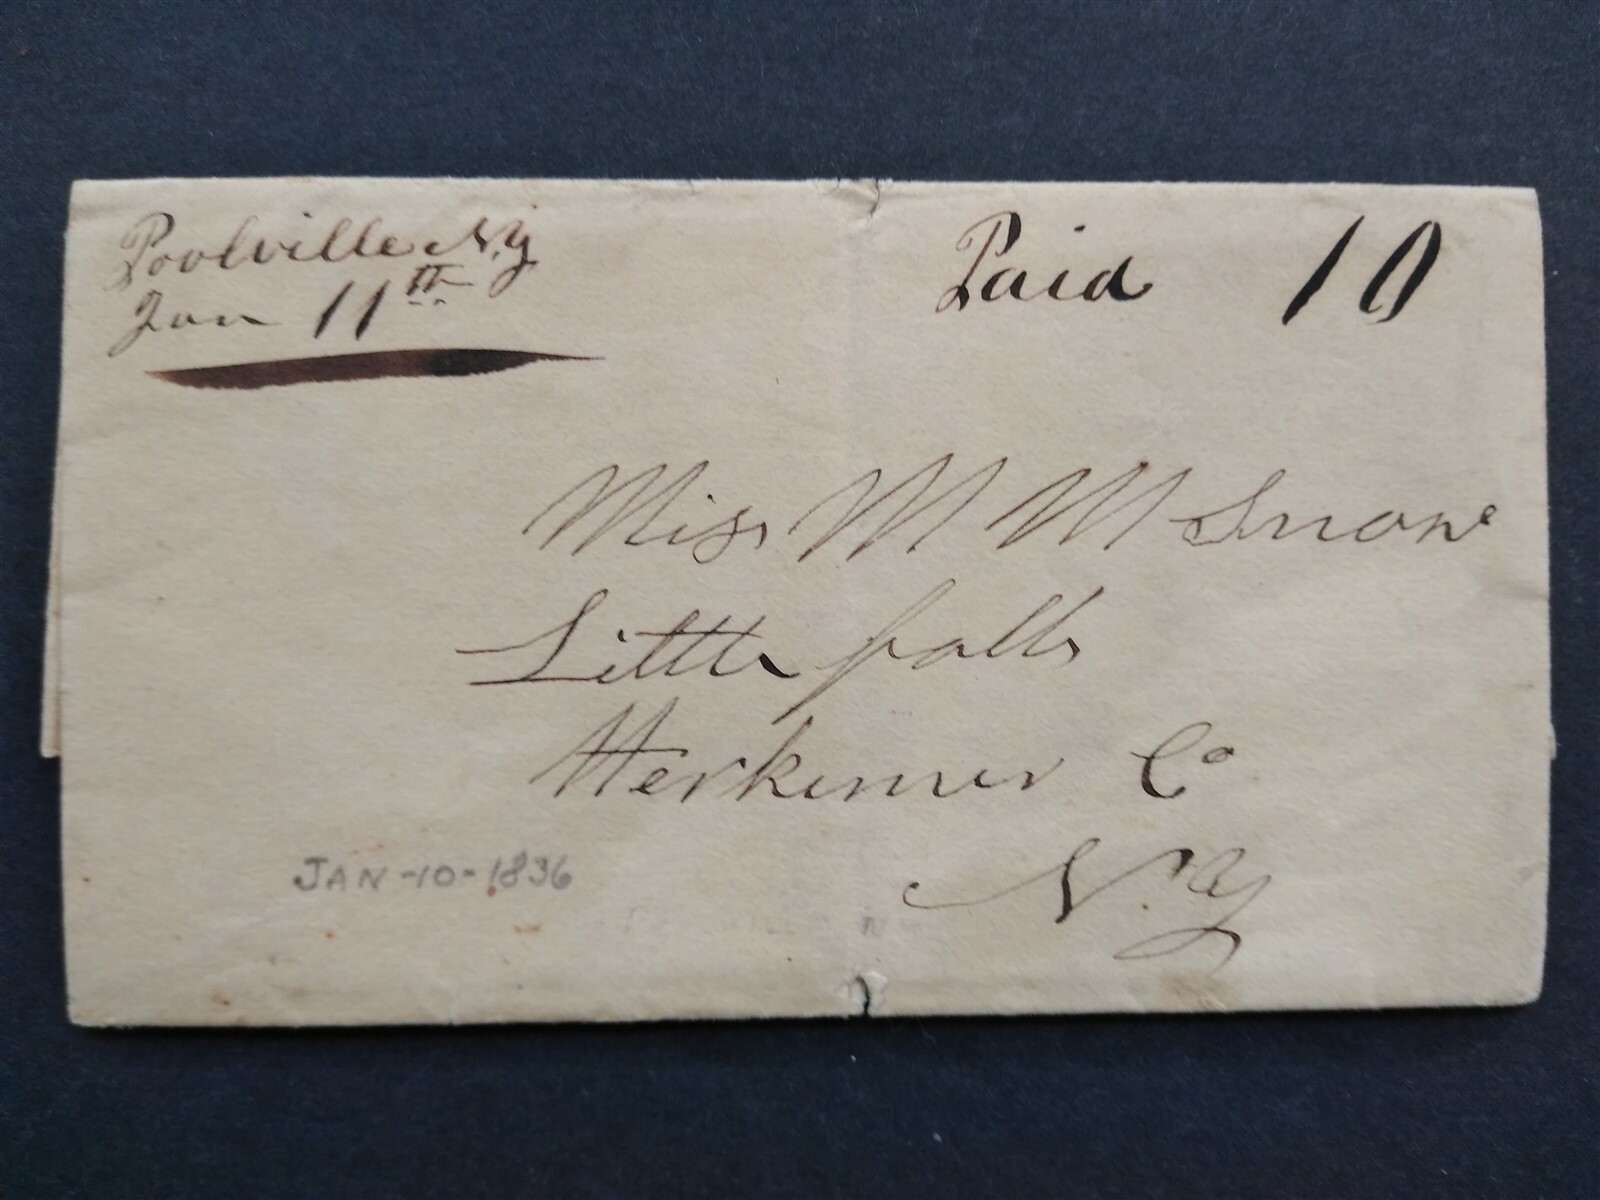 Poolville N.Y
Jan 11th
Paid 10
Miss M M Snow
Little falls
Herkimer Co
N.Y
JAN-10-1836